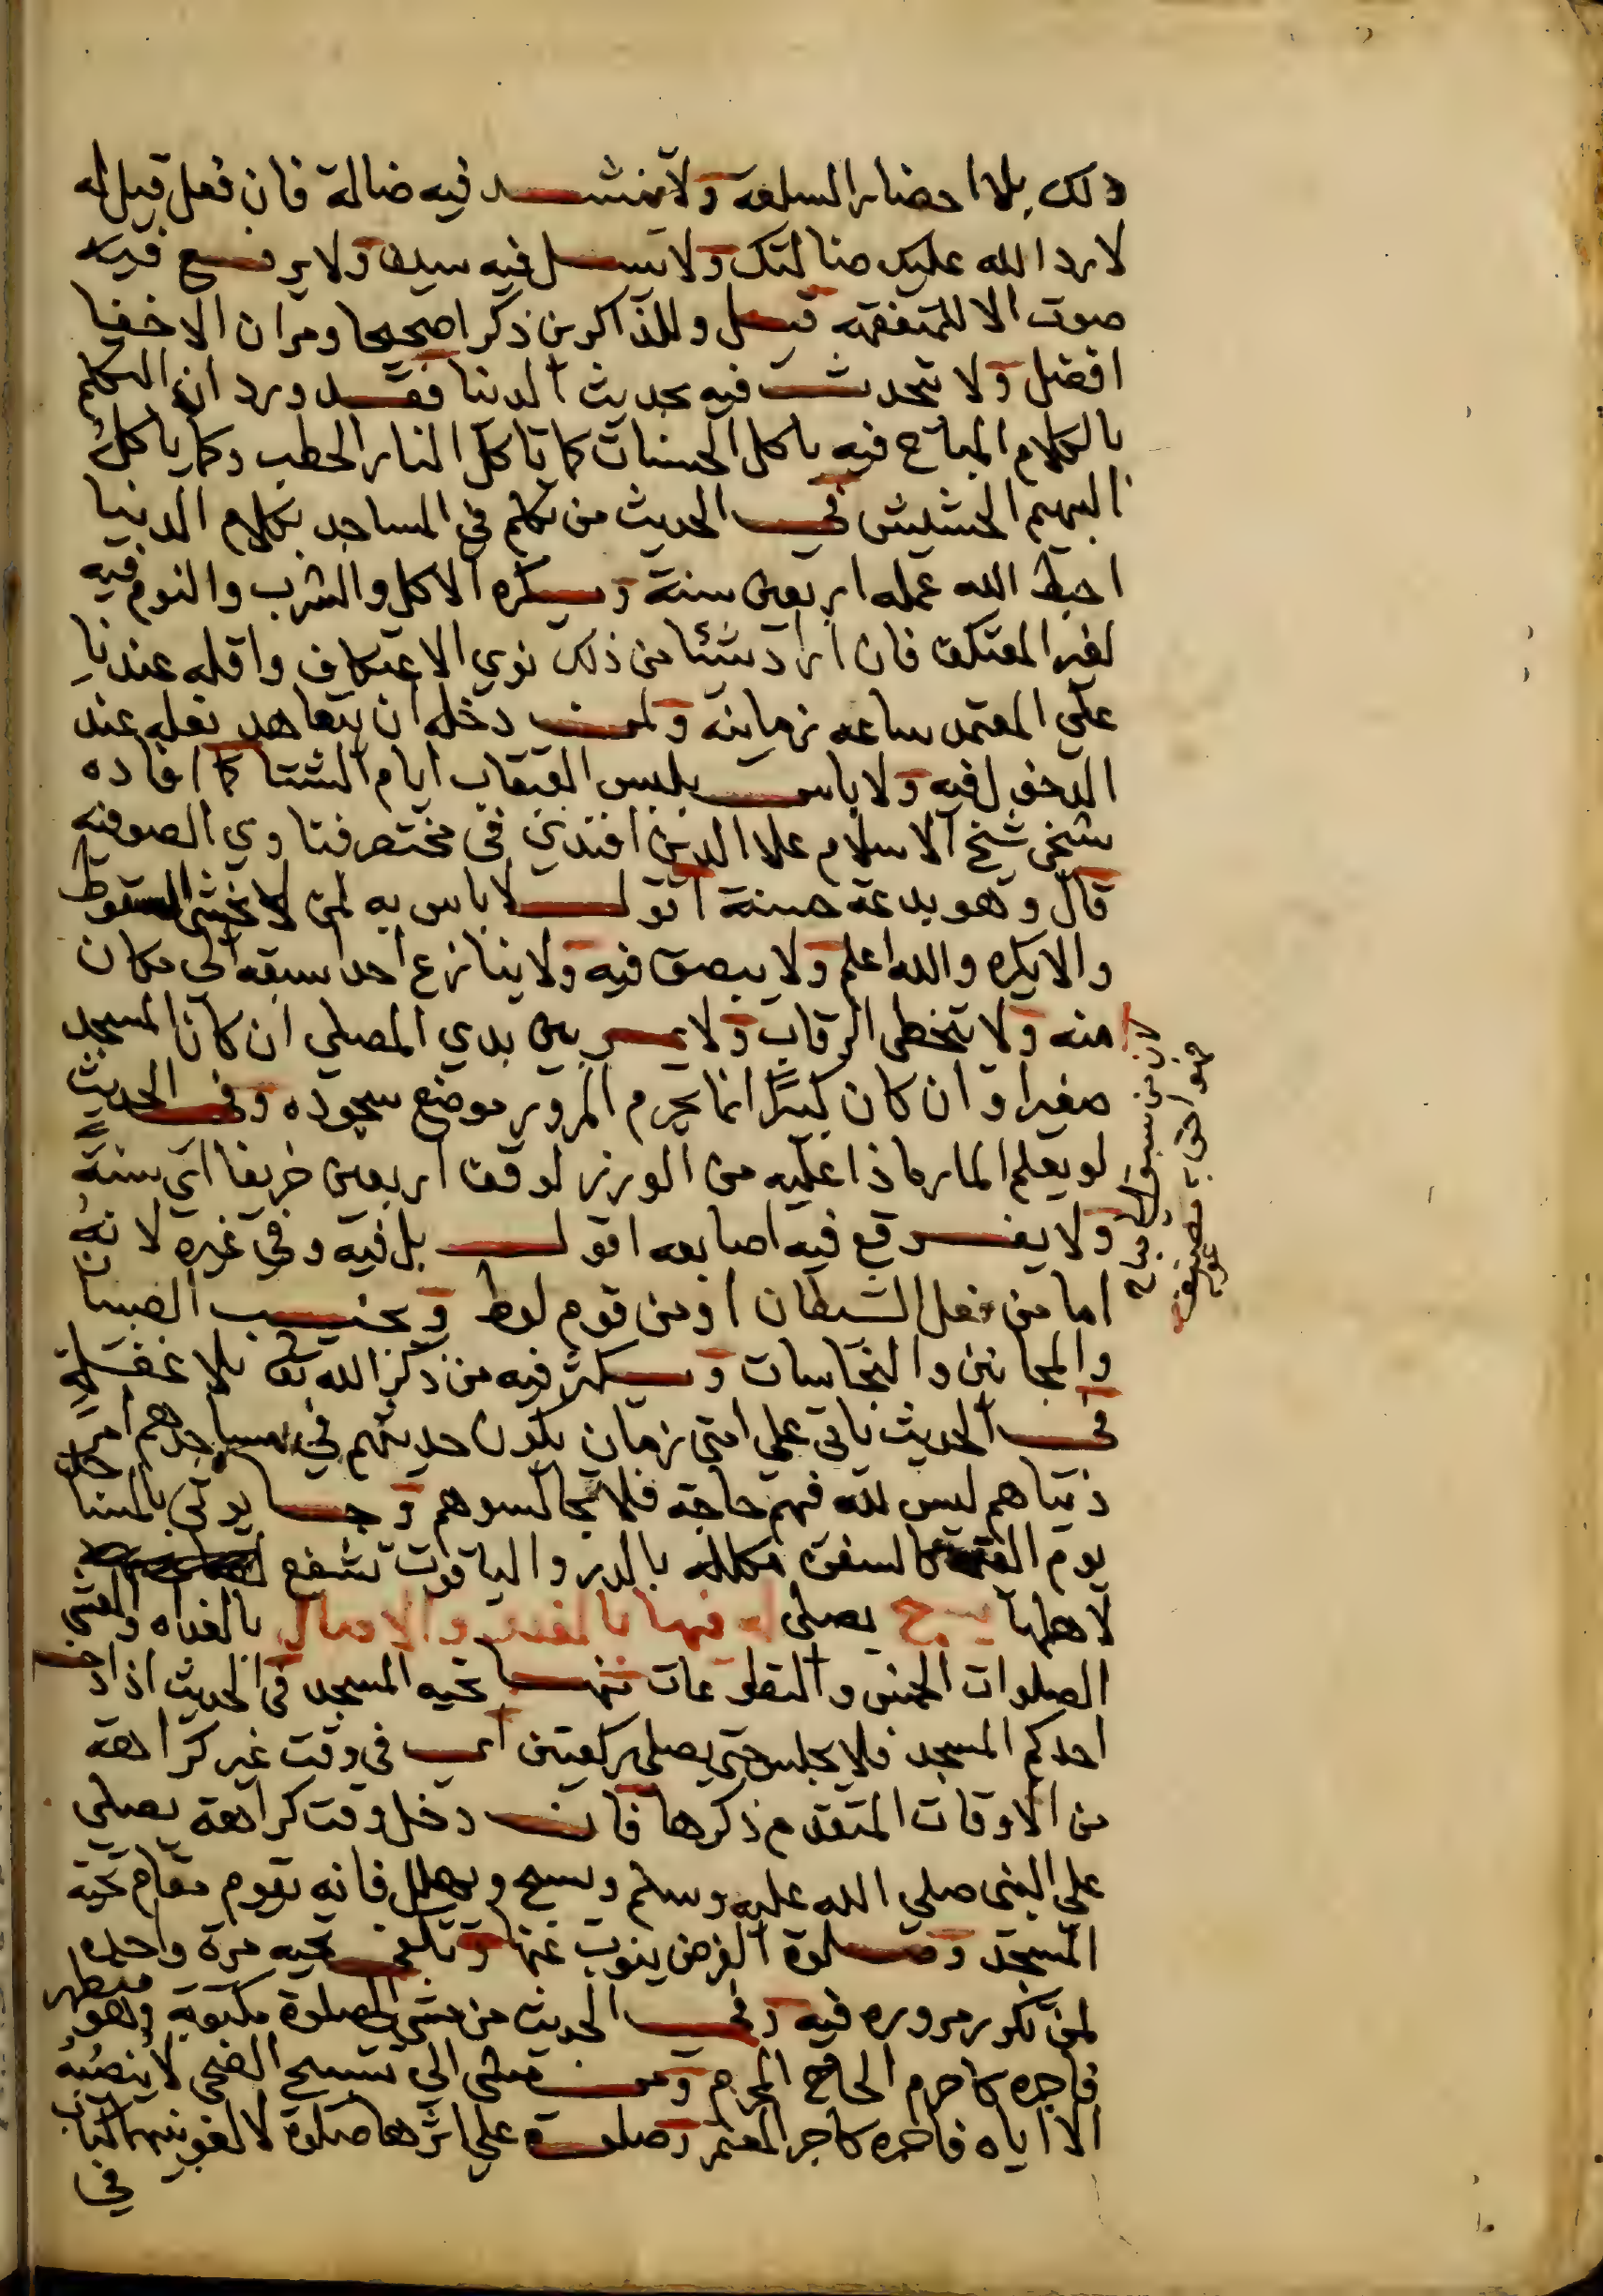 ذلك بلا احضار السلعة ولا ينشد فيه ضالة فان فعل قيل له
لا رد الله عليك ضالتك ولا يسل فيه سيف ولا يرفع فيه
صوت الا للمتفقهه قيل وللذاكرين ذكرا صحيحا ومر ان الاخفا
افضل ولا يتحدث فيه بحديث الدنيا فقد ورد ان التكلم
بالكلام المباح فيه ياكل الحسنات كما تاكل النار الحطب وكما ياكل
البهيم الحشيش في الحديث من تكلم في المساجد بكلام الدنيا
احبط الله عمله اربعين سنة ويكره الاكل والشرب والنوم فيه
لغير المعتكف فان اراد شيئا من ذلك نوي الاعتكاف واقله عندنا
علي المعتمد ساعه زمانيه ولمن دخله ان يتعاهد نعله عند
الدخول فيه ولا باس بلبس القبقاب ايام الشتا كما افاده
شيخي شيخ الاسلام علا الدين افندي في مختصر فتاوي الصوفيه
قال وهو بدعة حسنة اقول لا باس به لمن لا يخشى السقوط
والا يكره والله اعلم ولا يبصق فيه ولا ينازع احدا سبقه الي مكان
منه ولا يتخطى الرقاب ولا يمر بين يدي المصلي ان كان المسجد
صغيرا وان كان كبيرًا انما يحرم المرور موضع سجوده وفي الحديث
لو يعلم المار ماذا عليه من الوزر لوقف اربعين خريفا اي سنة
ولا يفرقع فيه اصابعه اقول بل فيه وفي غيره لانه
اما من فعل الشيطان او من قوم لوط ويجنب الصبيان
والمجانين والنجاسات ويكثر فيه من ذكر الله تعا بلا غفلة
في الحديث ياتي علي امتي زمان يكون حديثهم في مساجدهم امر
دنياهم ليس لله فيهم حاجة فلا تجالسوهم وجا يوتي بالمساجد
يوم القيمة كالسفن مكلله بالدر والياقوت تشفع
لاهلها يسبح يصلي له فيها بالغدو والاصال بالغداه والعشي
الصلوات الخمس والتطوعات منها تحيه المسجد في الحديث اذا دخل
احدكم المسجد فلا يجلس حتى يصلي ركعتين اي في وقت غير كراهة
من الاوقات المتقدم ذكرها فان دخل وقت كراهة يصلي
علي النبي صلي الله عليه وسلم ويسبح ويهلل فانه يقوم مقام تحية
المسجد وصلوة الفرض ينوب عنها وتكفي تحيه مرة واحده
لمن تكرر مروره فيه وفي الحديث من مشي الي صلوة مكتوبة وهو متطهر
فاجره كاجر الحاج المحرم ومن مشي الي تسبيح الضحى لا ينصبه
الا اياه فاجره كاجر المعتمر وصلوة علي اثرها صلوة لا لغو بينهما كتاب
في
كان من سبق الي مباح
فهو احق به